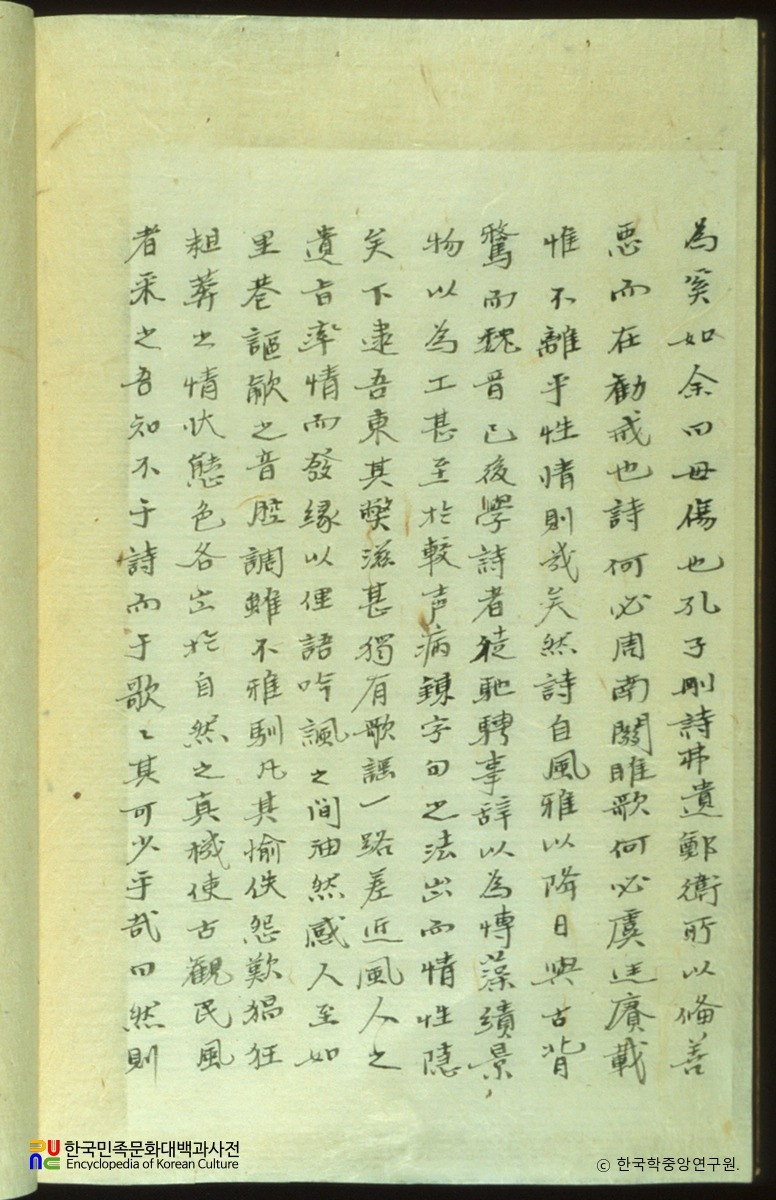 為奚如余曰毋傷也孔子刪詩弗遺鄭衛所以備善
惡而在勸戒也詩何必周南關雎歌何必虞廷賡載
惟不離乎性情則幾矣然詩自風雅以降日與古背
騖而魏晋已後學詩者徒馳騁事辞以為博藻繢景
物以為工甚至於較声病鍊字句之法出而情性隱
矣下逮吾東其弊滋甚獨有歌謡一路差近風人之
遺旨率情而發緣以俚語吟諷之間油然感人至如
里巷謳歈之音腔調雖不雅馴凡其愉佚怨歎猖狂
粗莽之情状態色各出於自然之真機使古觀民風
者采之吾知不于詩而于歌〻其可少乎哉曰然則
한국민족문화대백과사전
Encyclopedia of Korean Culture
© 한국학중앙연구원.